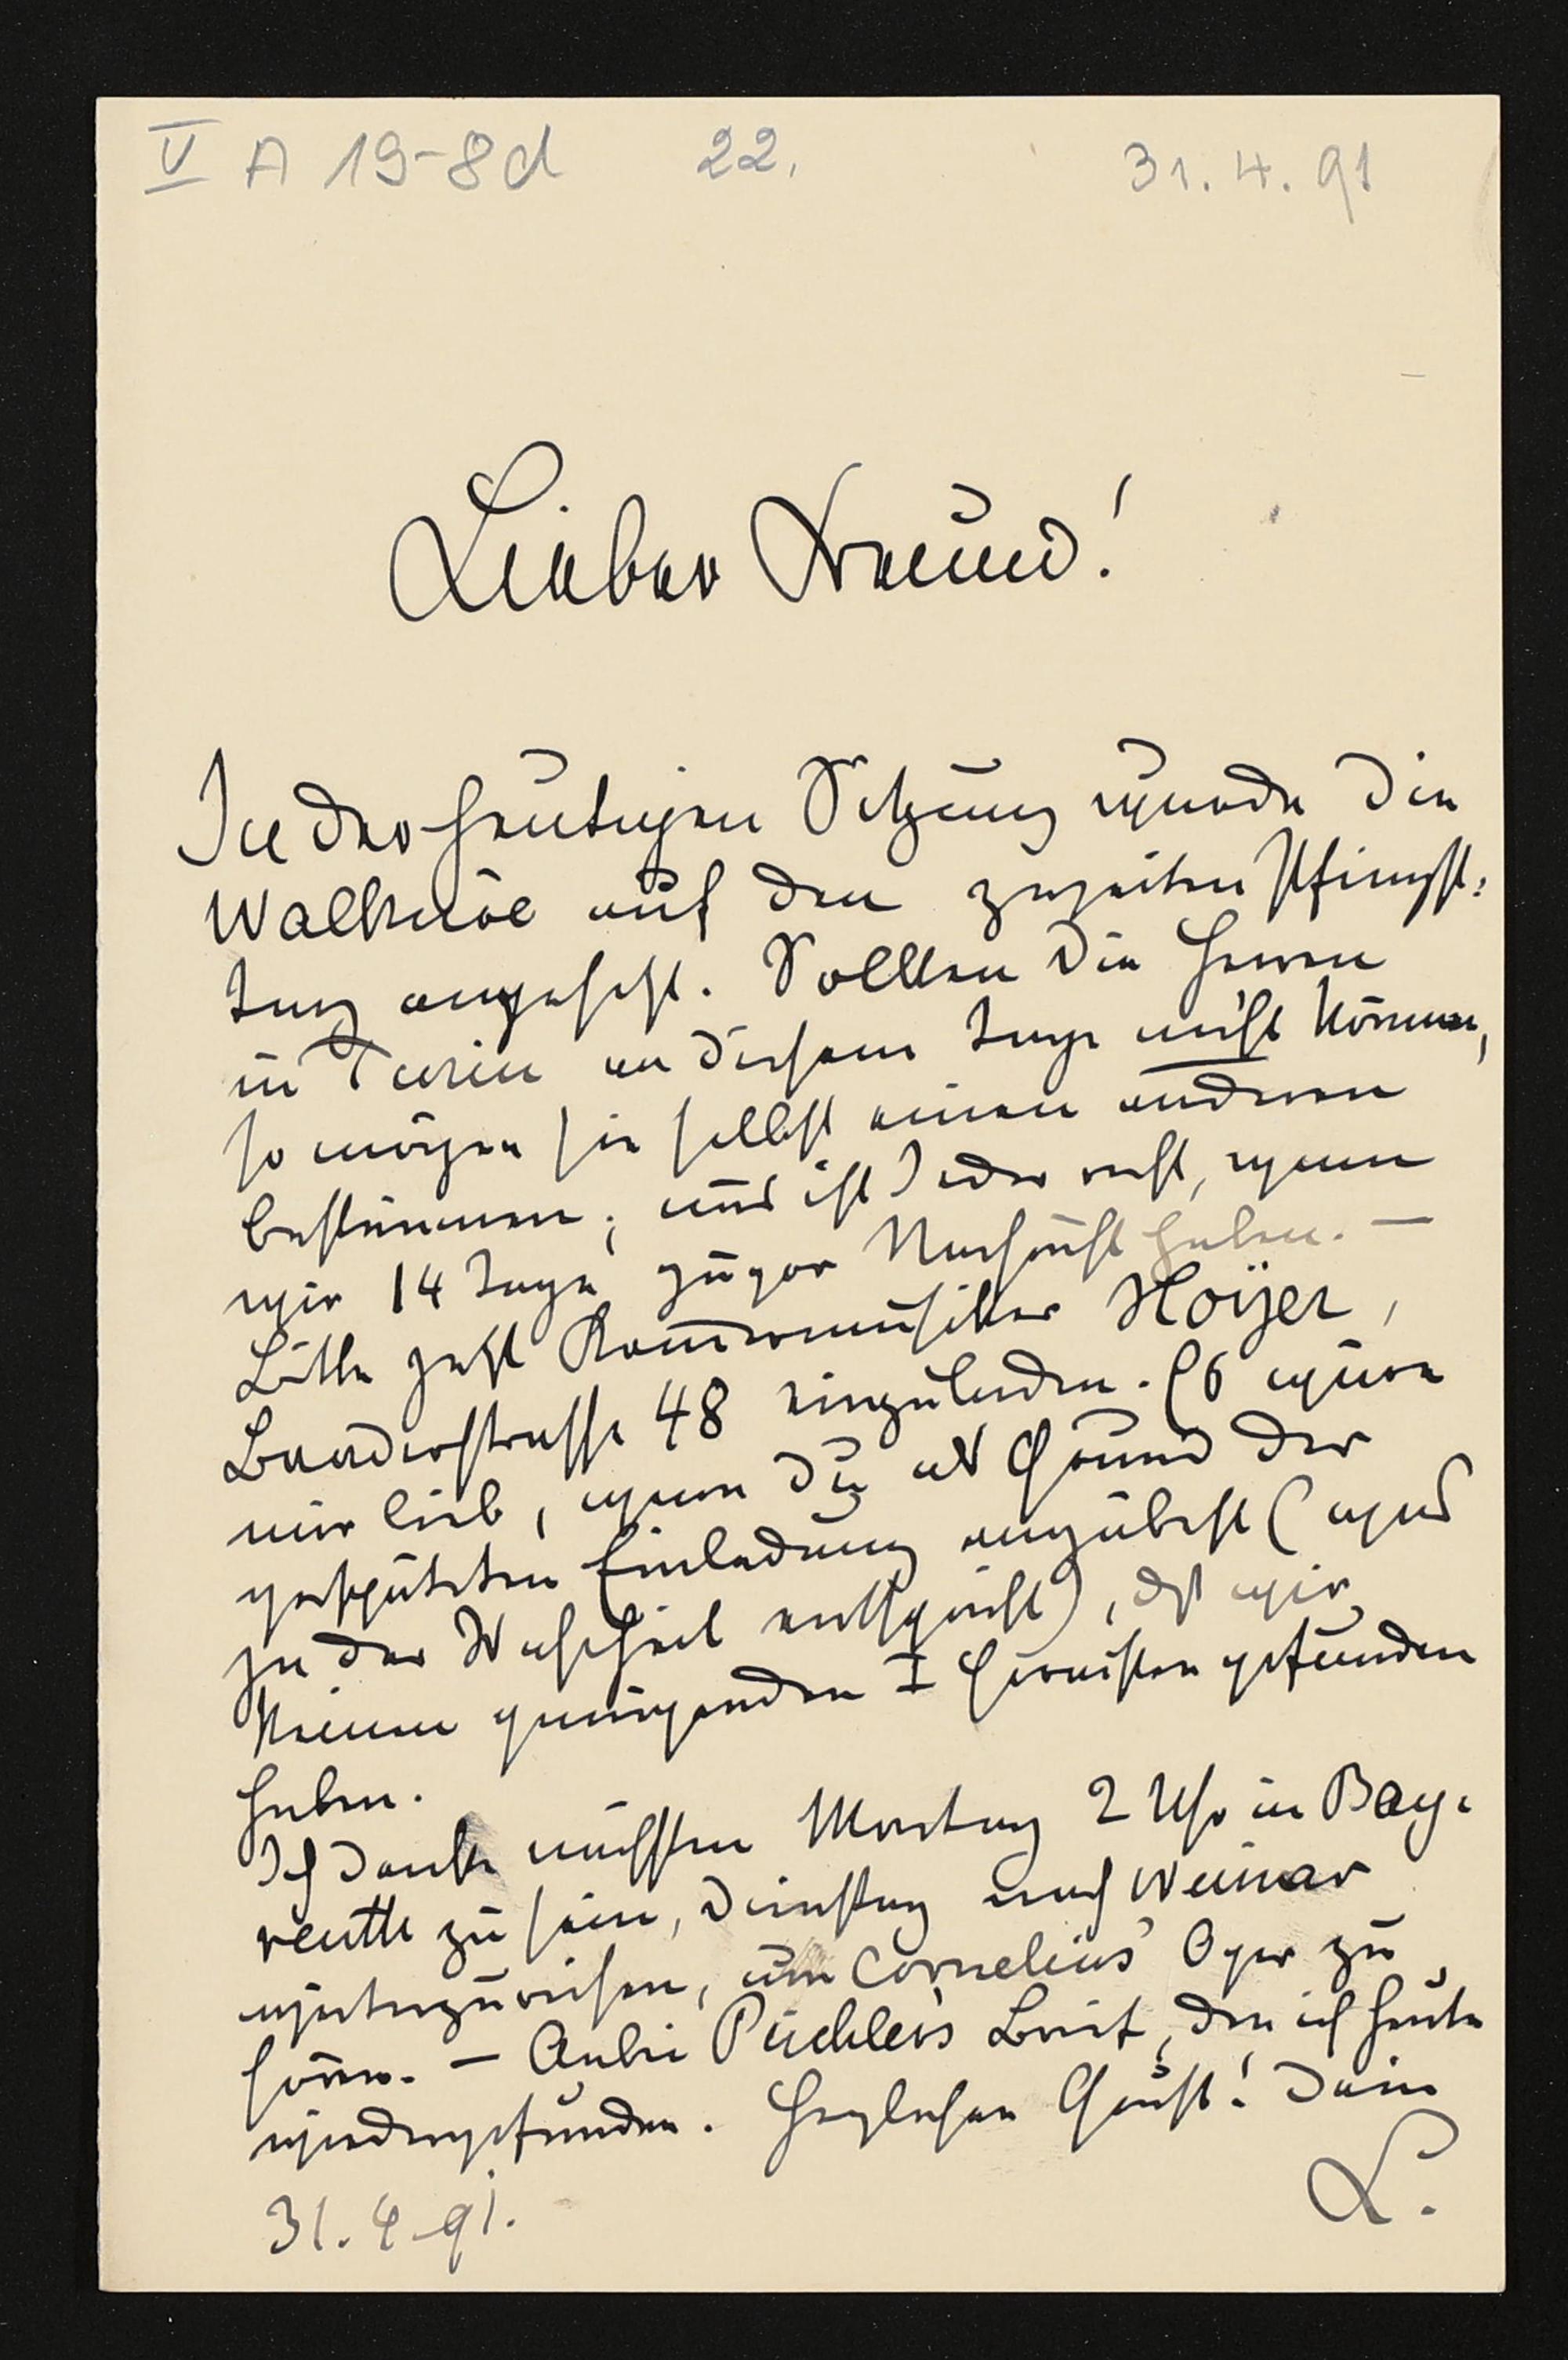 V A 19-8d 22. 31.4.91
Lieber Freund!
In der heutigen Sitzung wurde die
Walküre auf den zweiten Pfingst=
tag angesetzt. Sollten die Herren
in Turin an diesem Tage nicht können,
so mögen sie selbst einen anderen
bestimmen; uns ist Jeder recht, wenn
wir 14 Tage zuvor Nachricht haben. —
Bitte jetzt Kammermusiker Hoyer,
Baaderstrasse 48 einzuladen. Es wäre
mir lieb, wenn Du als Grund der
verspäteten Einladung angäbest (was
ja der Wahrheit entspricht), daß wir
keinen genügenden I Hornisten gefunden
haben.
Ich denke nächsten Montag 2 Uhr in Bay=
reuth zu sein, Dienstag nach Weimar
weiterzureisen, um Cornelius' Oper zu
hören. — Anbei Püchler's Brief, den ich heute
wiedergefunden. Herzlichen Gruß! Dein
L.
31.4.91.